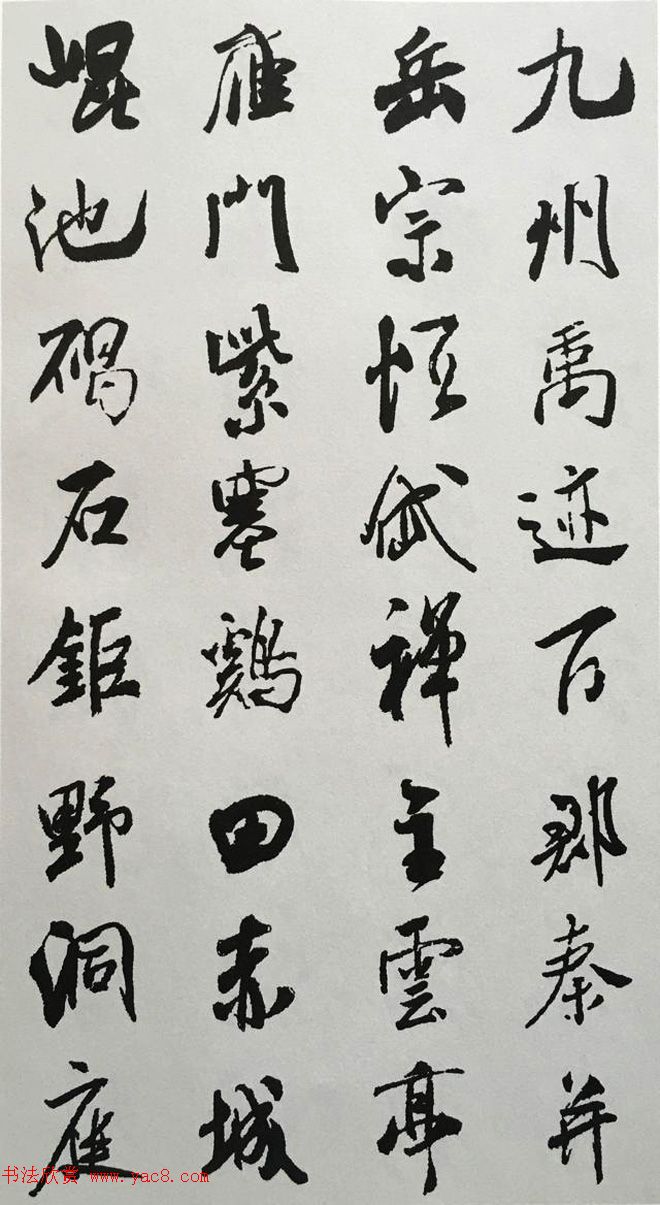 九州禹迹百郡秦并
岳宗恒岱禅主雲亭
雁門紫塞鷄田赤城
崐池碣石鉅野洞庭
书法欣赏 www.yac8.com